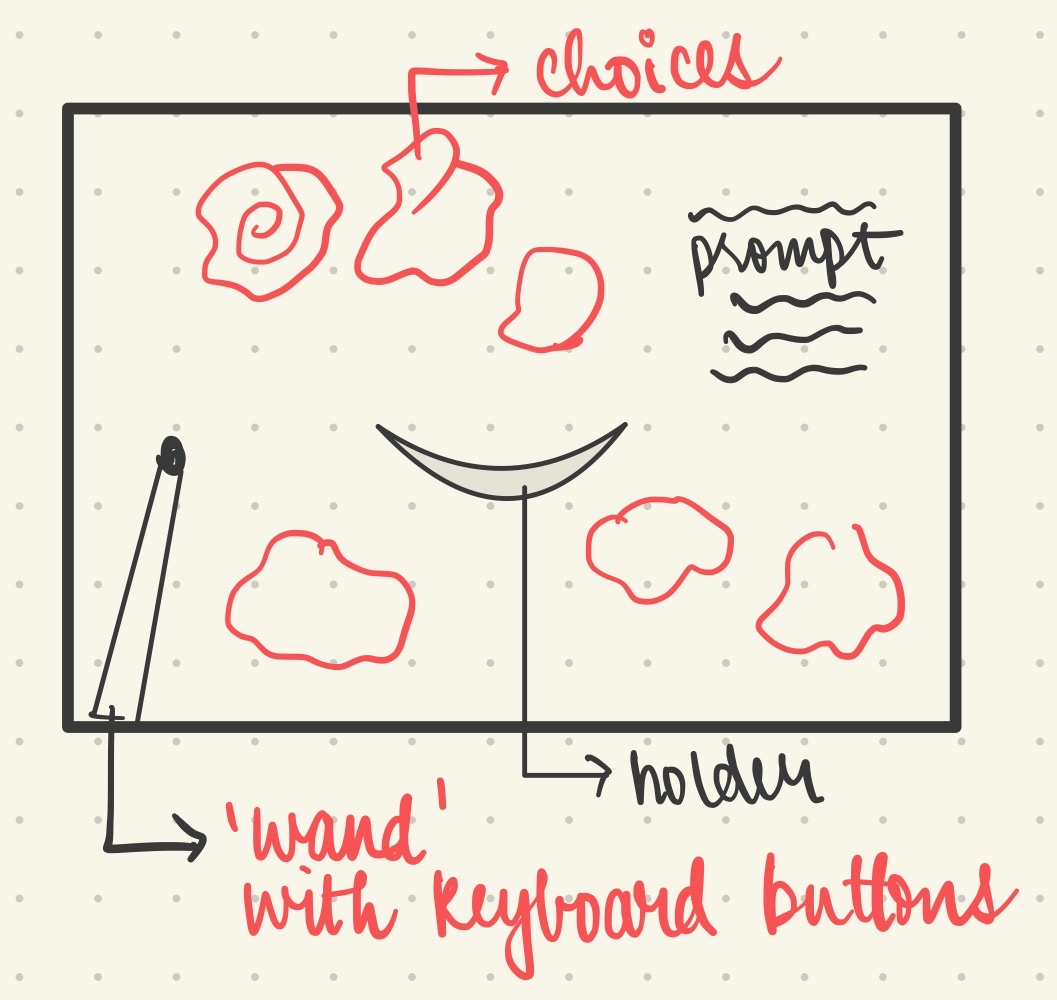 choices
prompt
holder
'wand'
with keyboard buttons